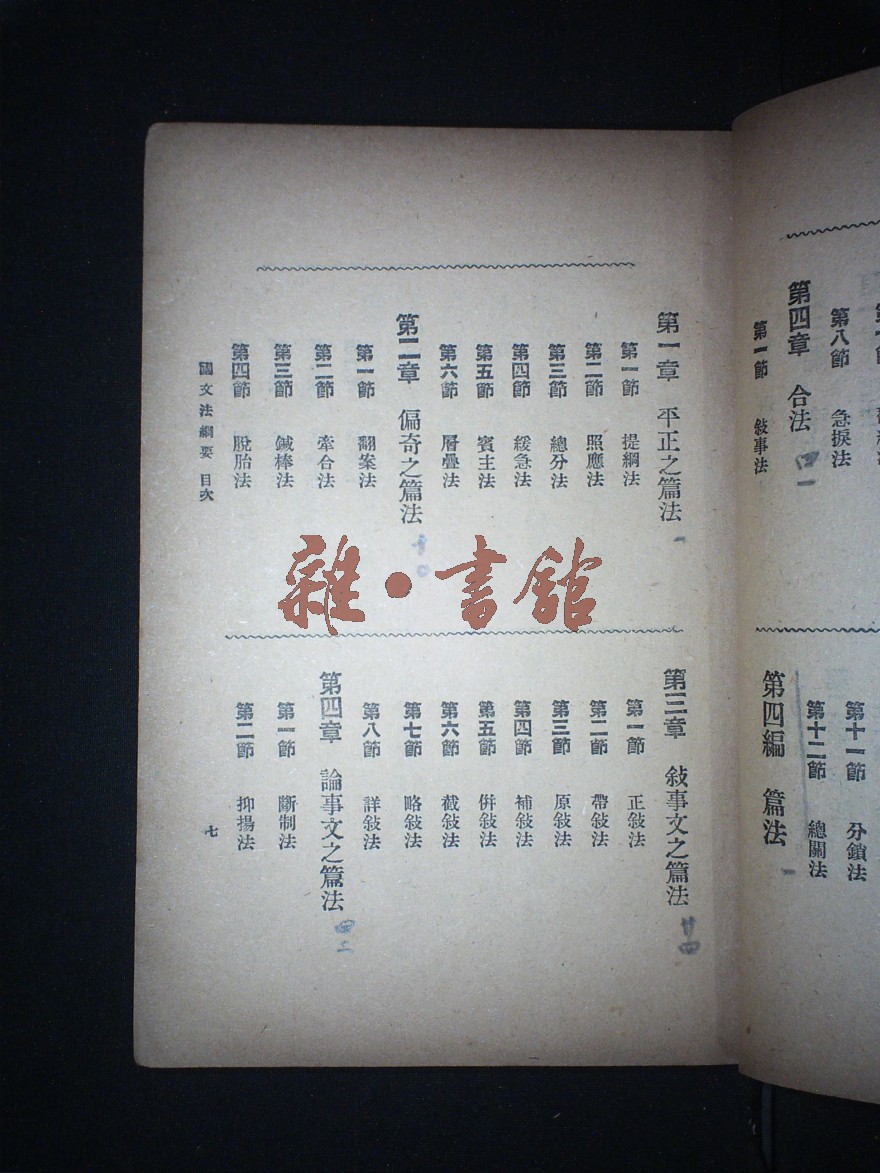 第八節 急捩法
第四章 合法
第一節 敍事法
第十一節 分鎖法
第十二節 總關法
第四編 篇法 一
第一章 平正之篇法 一
第一節 提綱法
第二節 照應法
第三節 總分法
第四節 緩急法
第五節 賓主法
第六節 層疊法
第二章 偏奇之篇法
第一節 翻案法
第二節 牽合法
第三節 鍼棒法
第四節 脫胎法
第三章 敍事文之篇法 廿四
第一節 正敍法
第二節 帶敍法
第三節 原敍法
第四節 補敍法
第五節 倂敍法
第六節 截敍法
第七節 略敍法
第八節 詳敍法
第四章 論事文之篇法 四二
第一節 斷制法
第二節 抑揚法
國文法綱要 目次
七
雜·書館